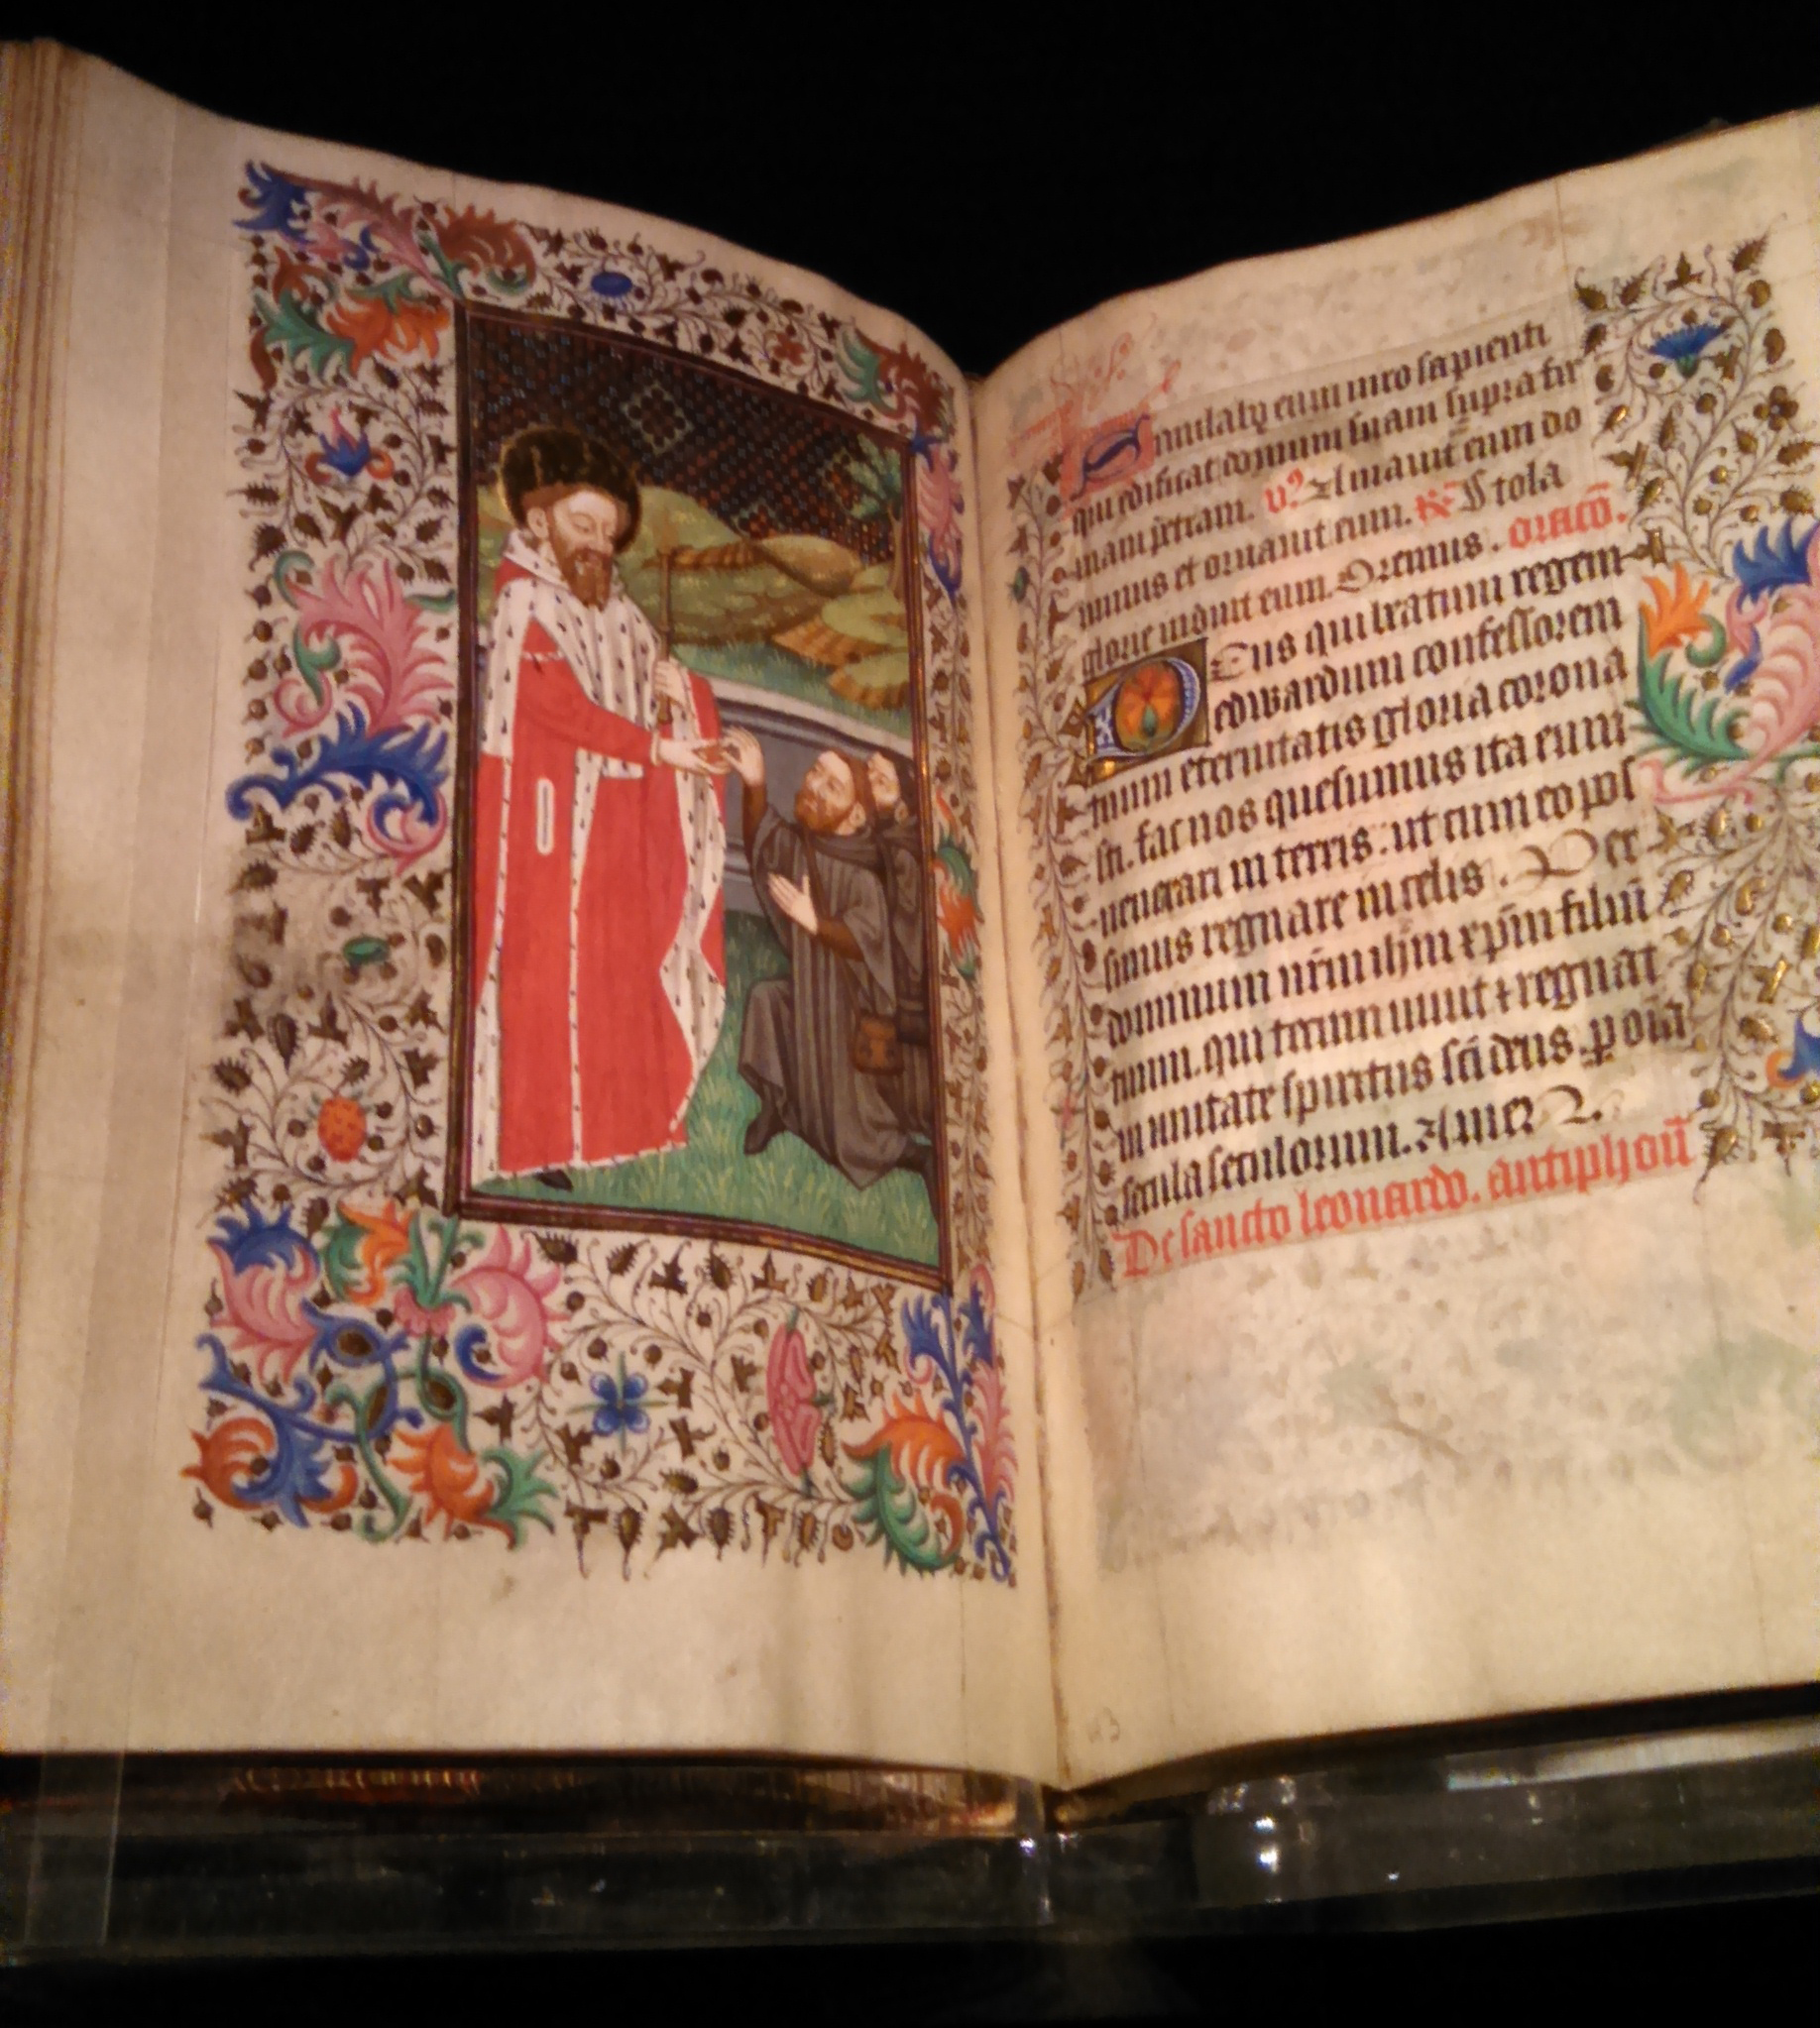 Similabo eum viro sapienti
qui edificat domum suam supra fir
mam petram. v? Amavit eum do
minus et ornavit eum. R Stola
glorie induit eum. Oremus. oracō.
Deus qui beatum regem
edwardum confessorem
tuum eternitatis gloria corona
sti. fac nos quesumus ita eum
venerari in terris. ut cum eo pos
simus regnare in celis. Per
dominum nr̄m ihm xp̄m filiū
tuum. qui tecum vivit ⁊ regnat
in unitate spiritus sc̄i deus. ꝑ oīa
secula seculorum. Amen.
De sancto leonardo. antiphoñ